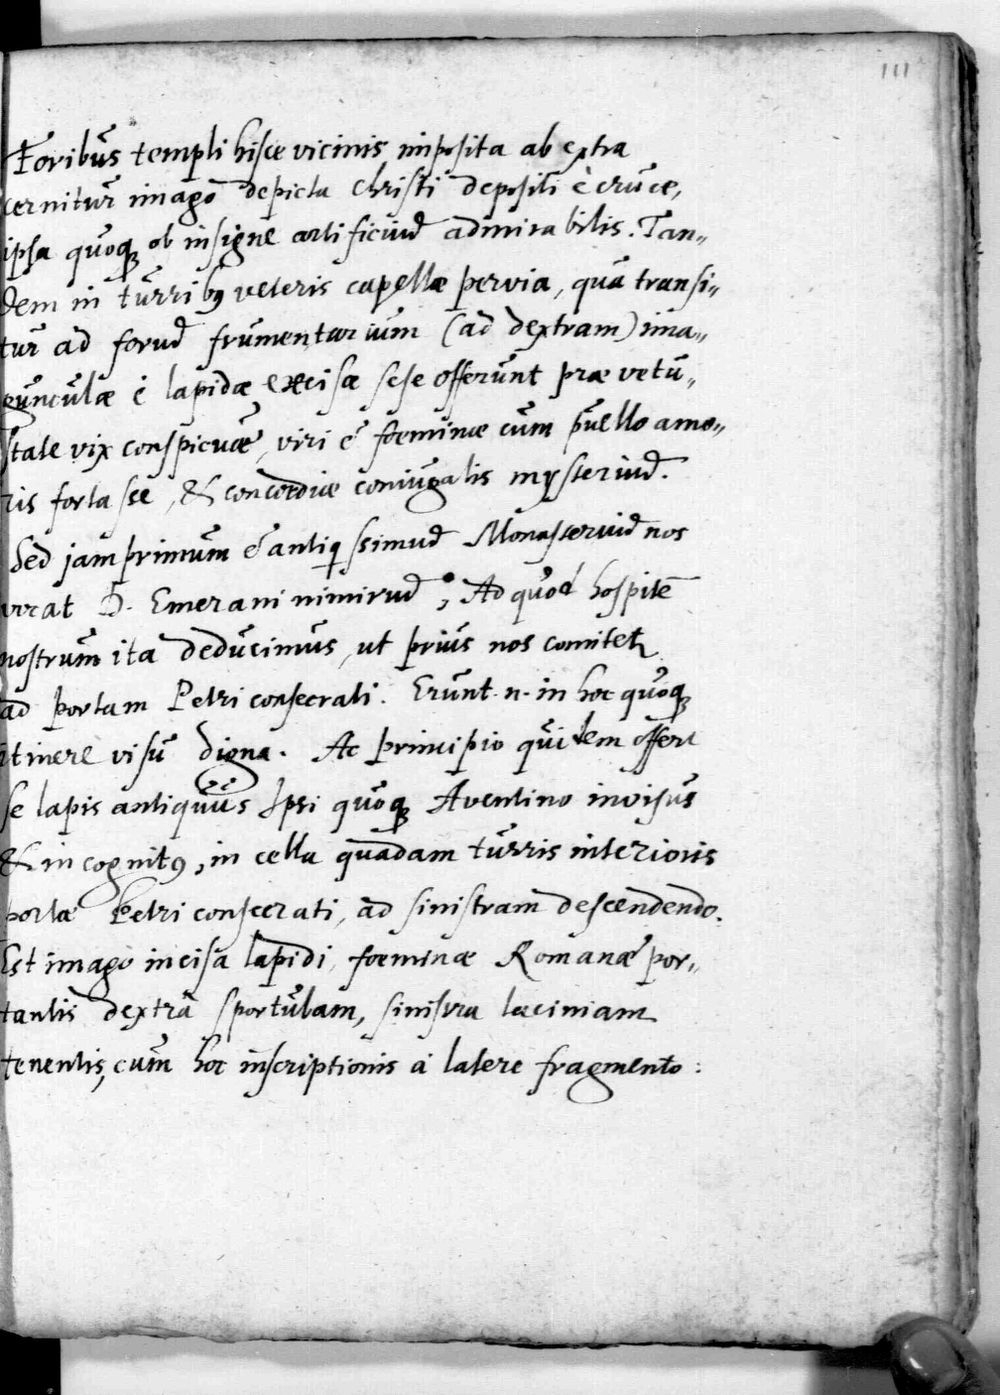 111
Foribus templi hisce vicinis imposita ab extra
cernitur imago depicta Christi depositi è cruce,
ipsa quoq; ob insigne artificiu̅ admirabilis. Tan„
dem in turrib9 veteris capellæ pervia, qua transi„
tur ad foru̅ frumentarium (ad dextram) ima„
gunculæ è lapidæ excisæ sese offerunt præ vetu„
state vix conspicuæ, viri & foeminæ cum puello amo„
ris fortasse, & concordiæ coniugalis mysteriu̅.
Sed jam primum & antiqissimu̅ Monasteriu̅ nos
vocat D. Emerani nimiru̅, Ad quod hospite̅
nostrum ita deducimus, ut prius nos comitet᷑
ad portam Petri consecrati. Erunt .n. in hoc quoq;
itinere visu digna. Ac principio quidem offert
se lapis antiquus Ipsi quoq; Aventino invisus
& incognit9, in cella quadam turris interioris
portæ Petri consecrati, ad sinistram descendendo.
Est imago incisa lapidi, foeminæ Romanæ por„
tantis dextrâ sportulam, sinistra laciniam
tenentis, cum hoc inscriptionis à latere fragmento: